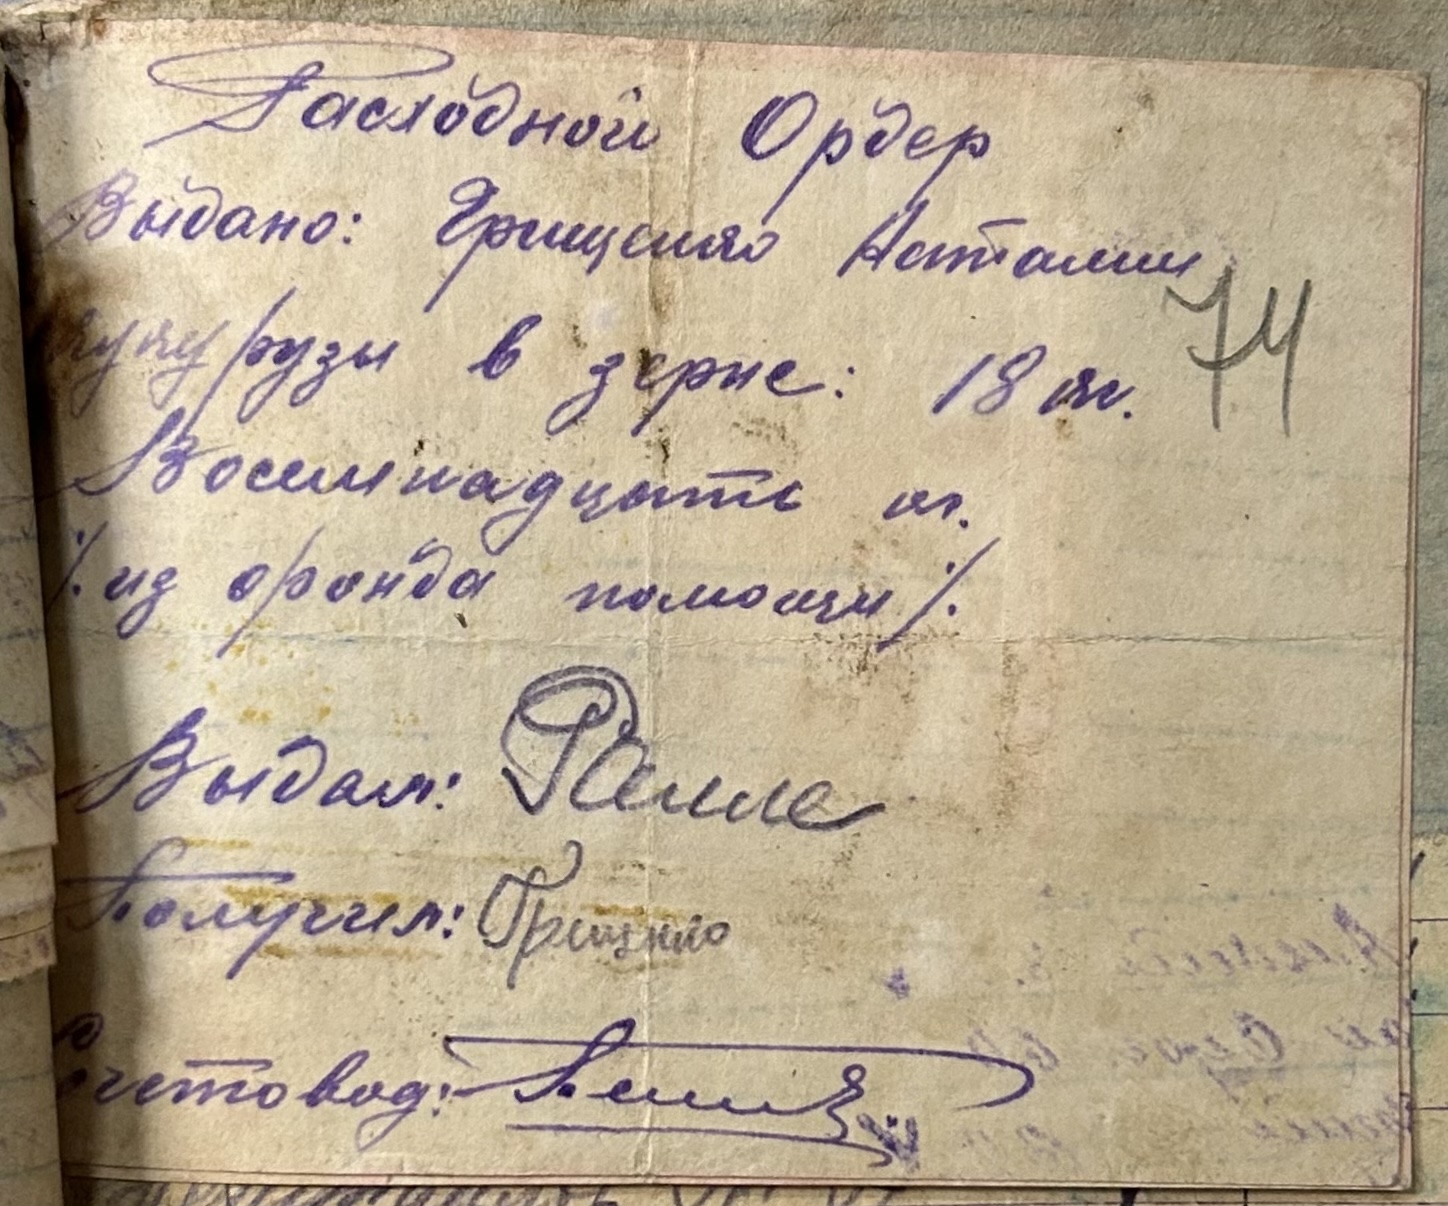 Расходной Ордер
Выдано: Грищенко Наталии
кукурузы в зерне: 18 кг.
74
Восемнадцать кг.
/. из фонда помощи /.
Выдал:
Получил: Грищенко
Счетовод: